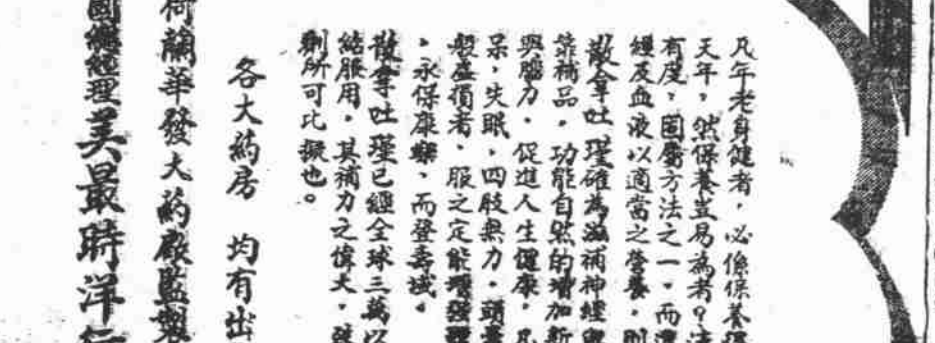 凡年老身健者，必係保養得
天年，然保養豈易為者？
有度，固屬方法之一，而
經及血液以適當之營養，則
散拿吐瑾確為滋補神經
靠補品，功能自然的增加新
與腦力，促進人生健康，凡
呆，失眠，四肢無力，頭
般虛損者，服之定能增強
，永保康樂，而登壽域。
散拿吐瑾已經全球三萬以
結服用，其補力之偉大，
劑所可比擬也。
各大藥房 均有出
荷蘭華發大葯廠監製
國總經理美最時洋行